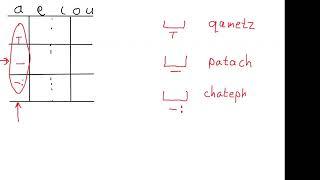 a e i o u
qametz
patach
chateph